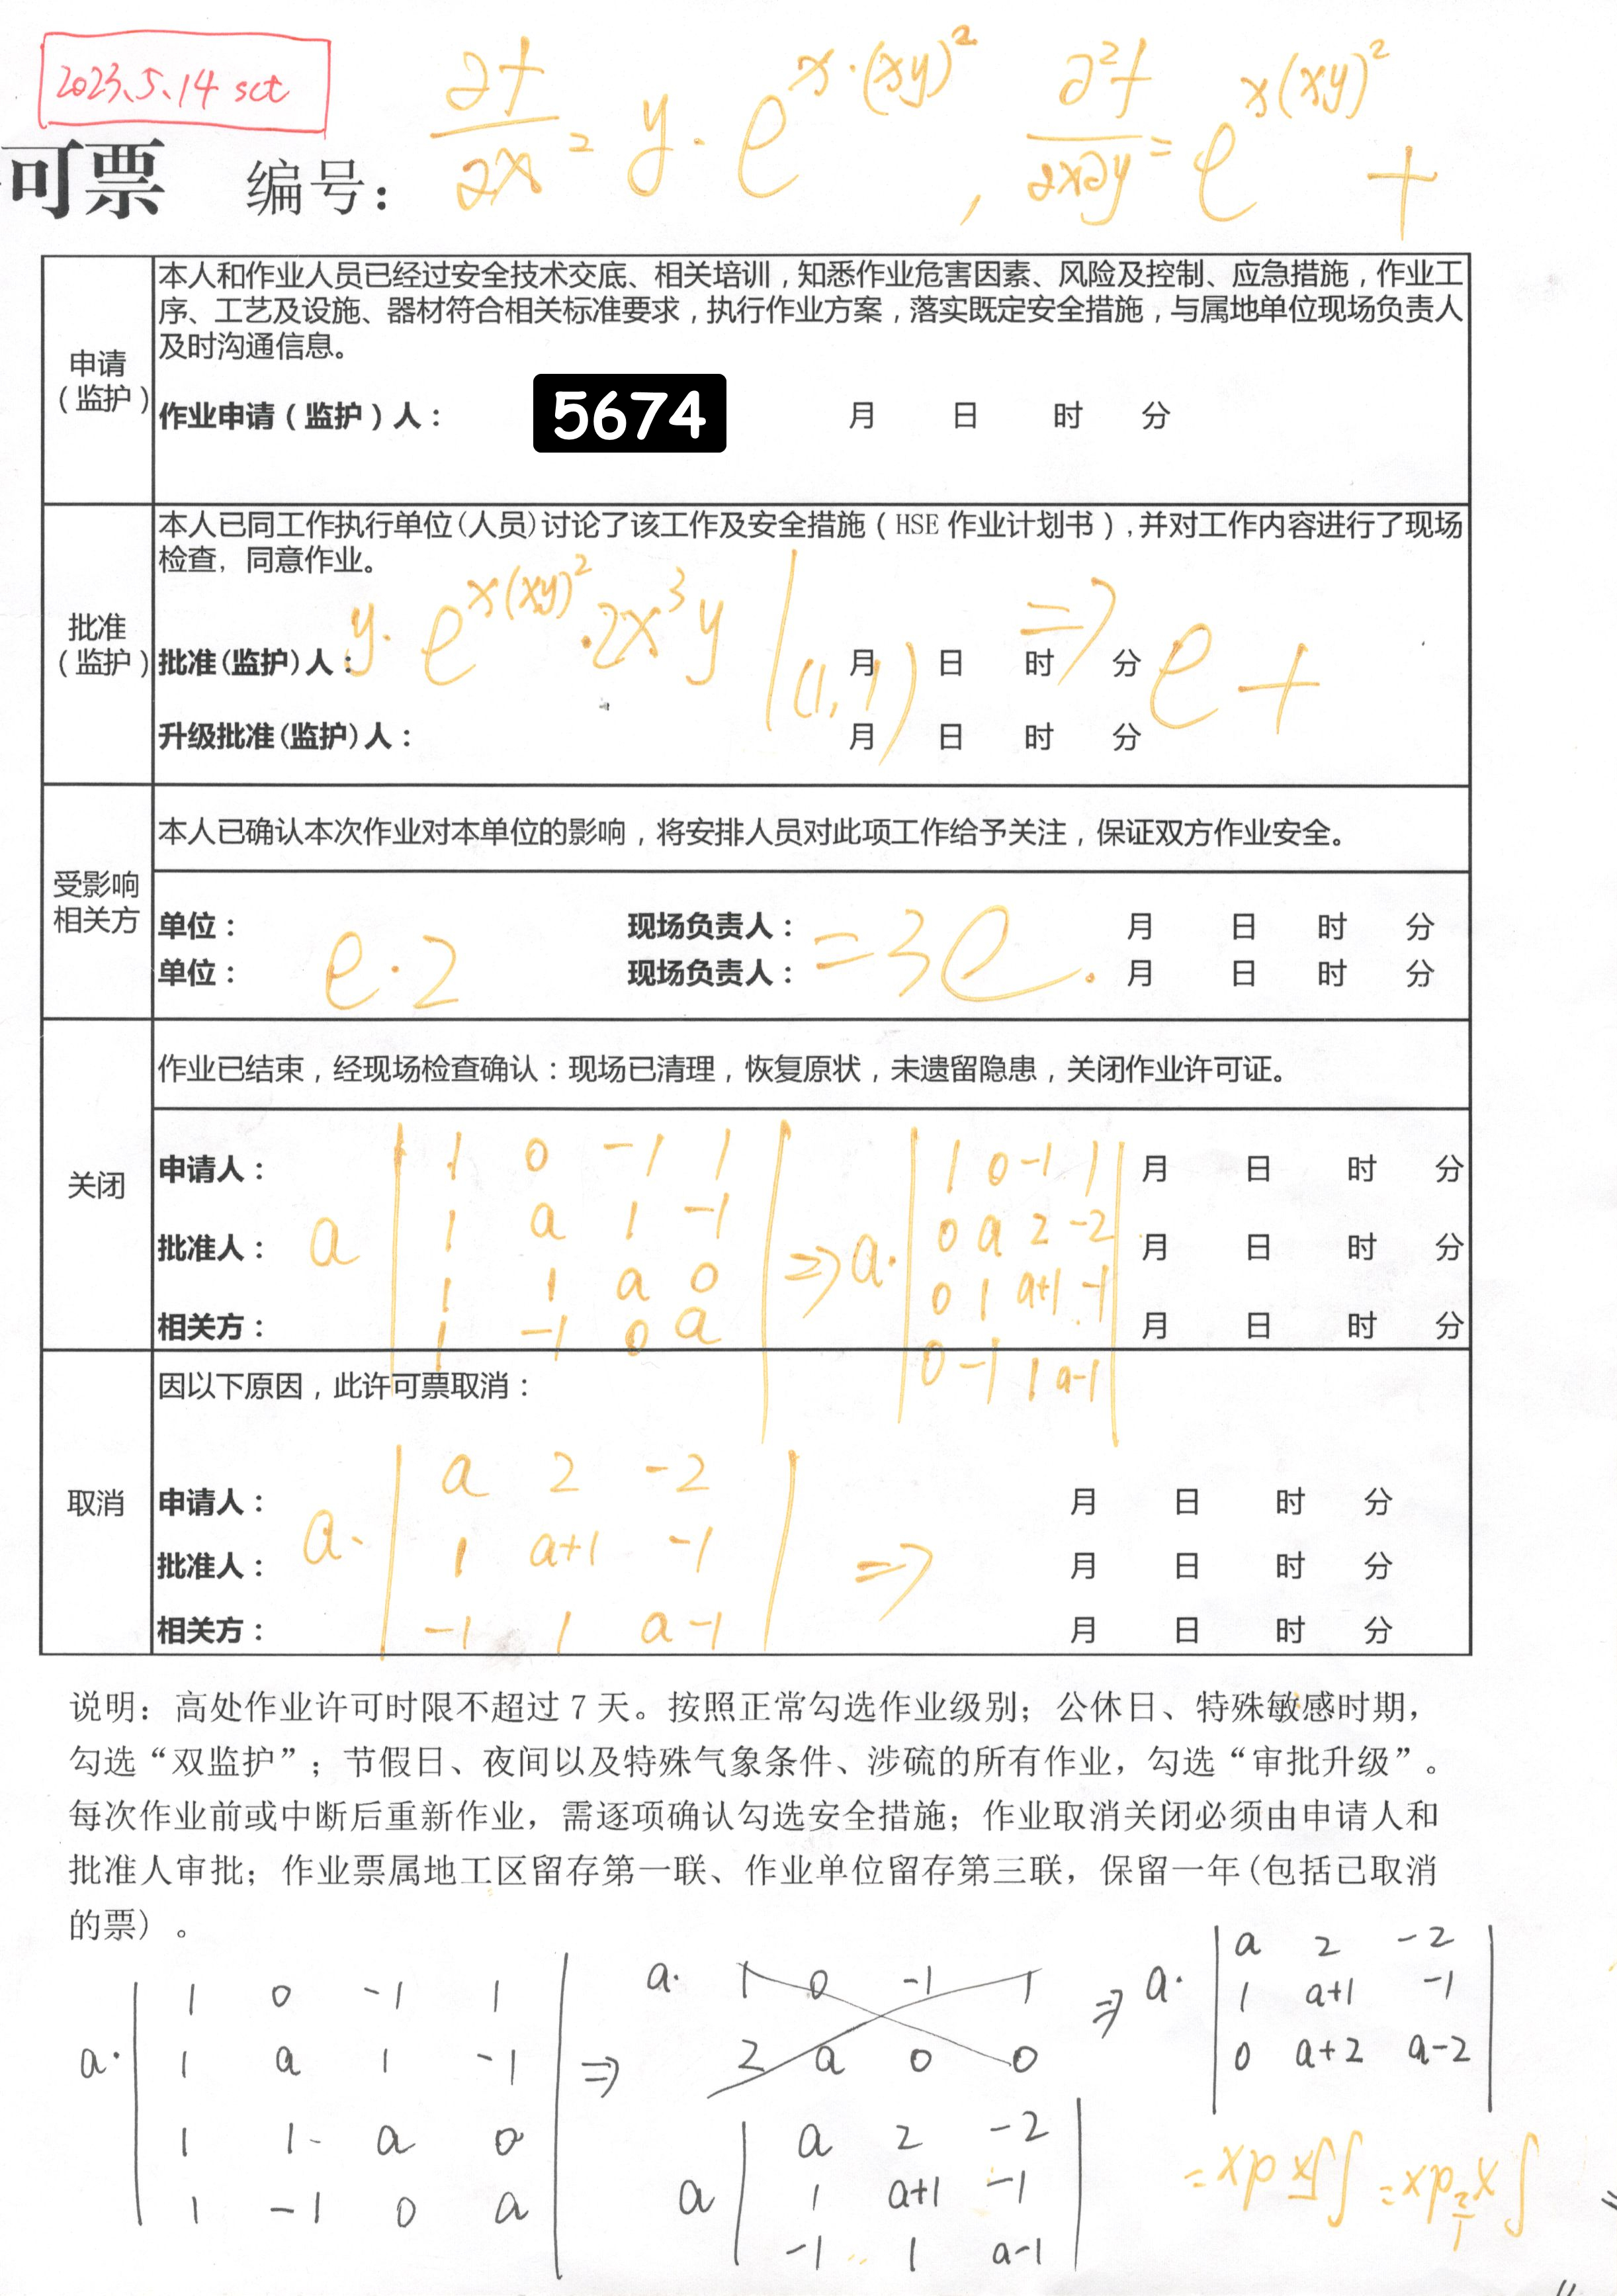 2023.5.14 sct
∂f/∂x = y·e^{x·(xy)^2}, ∂²f/∂x∂y = e^{x(xy)^2} +
可票 编号：
申请（监护）
本人和作业人员已经过安全技术交底、相关培训，知悉作业危害因素、风险及控制、应急措施，作业工
序、工艺及设施、器材符合相关标准要求，执行作业方案，落实既定安全措施，与属地单位现场负责人
及时沟通信息。
作业申请（监护）人： 5674 月 日 时 分
批准（监护）
本人已同工作执行单位(人员)讨论了该工作及安全措施（HSE 作业计划书），并对工作内容进行了现场
检查，同意作业。
y·e^{x(xy)^2}·2x^3y |(1,1) => e +
批准(监护)人： 月 日 时 分
升级批准(监护)人： 月 日 时 分
受影响相关方
本人已确认本次作业对本单位的影响，将安排人员对此项工作给予关注，保证双方作业安全。
单位： 现场负责人： 月 日 时 分
单位： 现场负责人： 月 日 时 分
e·2 = 3e.
关闭
作业已结束，经现场检查确认：现场已清理，恢复原状，未遗留隐患，关闭作业许可证。
申请人： 月 日 时 分
批准人： 月 日 时 分
相关方： 月 日 时 分
a | 1 0 -1 1 | => a· | 1 0 -1 1 |
1 a 1 -1 0 a 2 -2
1 1 a 0 0 1 a+1 -1
1 -1 0 a 0 -1 1 a-1
取消
因以下原因，此许可票取消：
申请人： 月 日 时 分
批准人： 月 日 时 分
相关方： 月 日 时 分
a 2 -2
a· 1 a+1 -1 =>
-1 1 a-1
说明：高处作业许可时限不超过 7 天。按照正常勾选作业级别；公休日、特殊敏感时期，
勾选“双监护”；节假日、夜间以及特殊气象条件、涉硫的所有作业，勾选“审批升级”。
每次作业前或中断后重新作业，需逐项确认勾选安全措施；作业取消关闭必须由申请人和
批准人审批；作业票属地工区留存第一联、作业单位留存第三联，保留一年(包括已取消
的票）。
a· | 1 0 -1 1 |
1 a 1 -1
1 1 a 0
1 -1 0 a
=> a· 1 0 -1 1
2 a 0 0
=> a· | a 2 -2 |
1 a+1 -1
0 a+2 a-2
a | a 2 -2 |
1 a+1 -1
-1 1 a-1